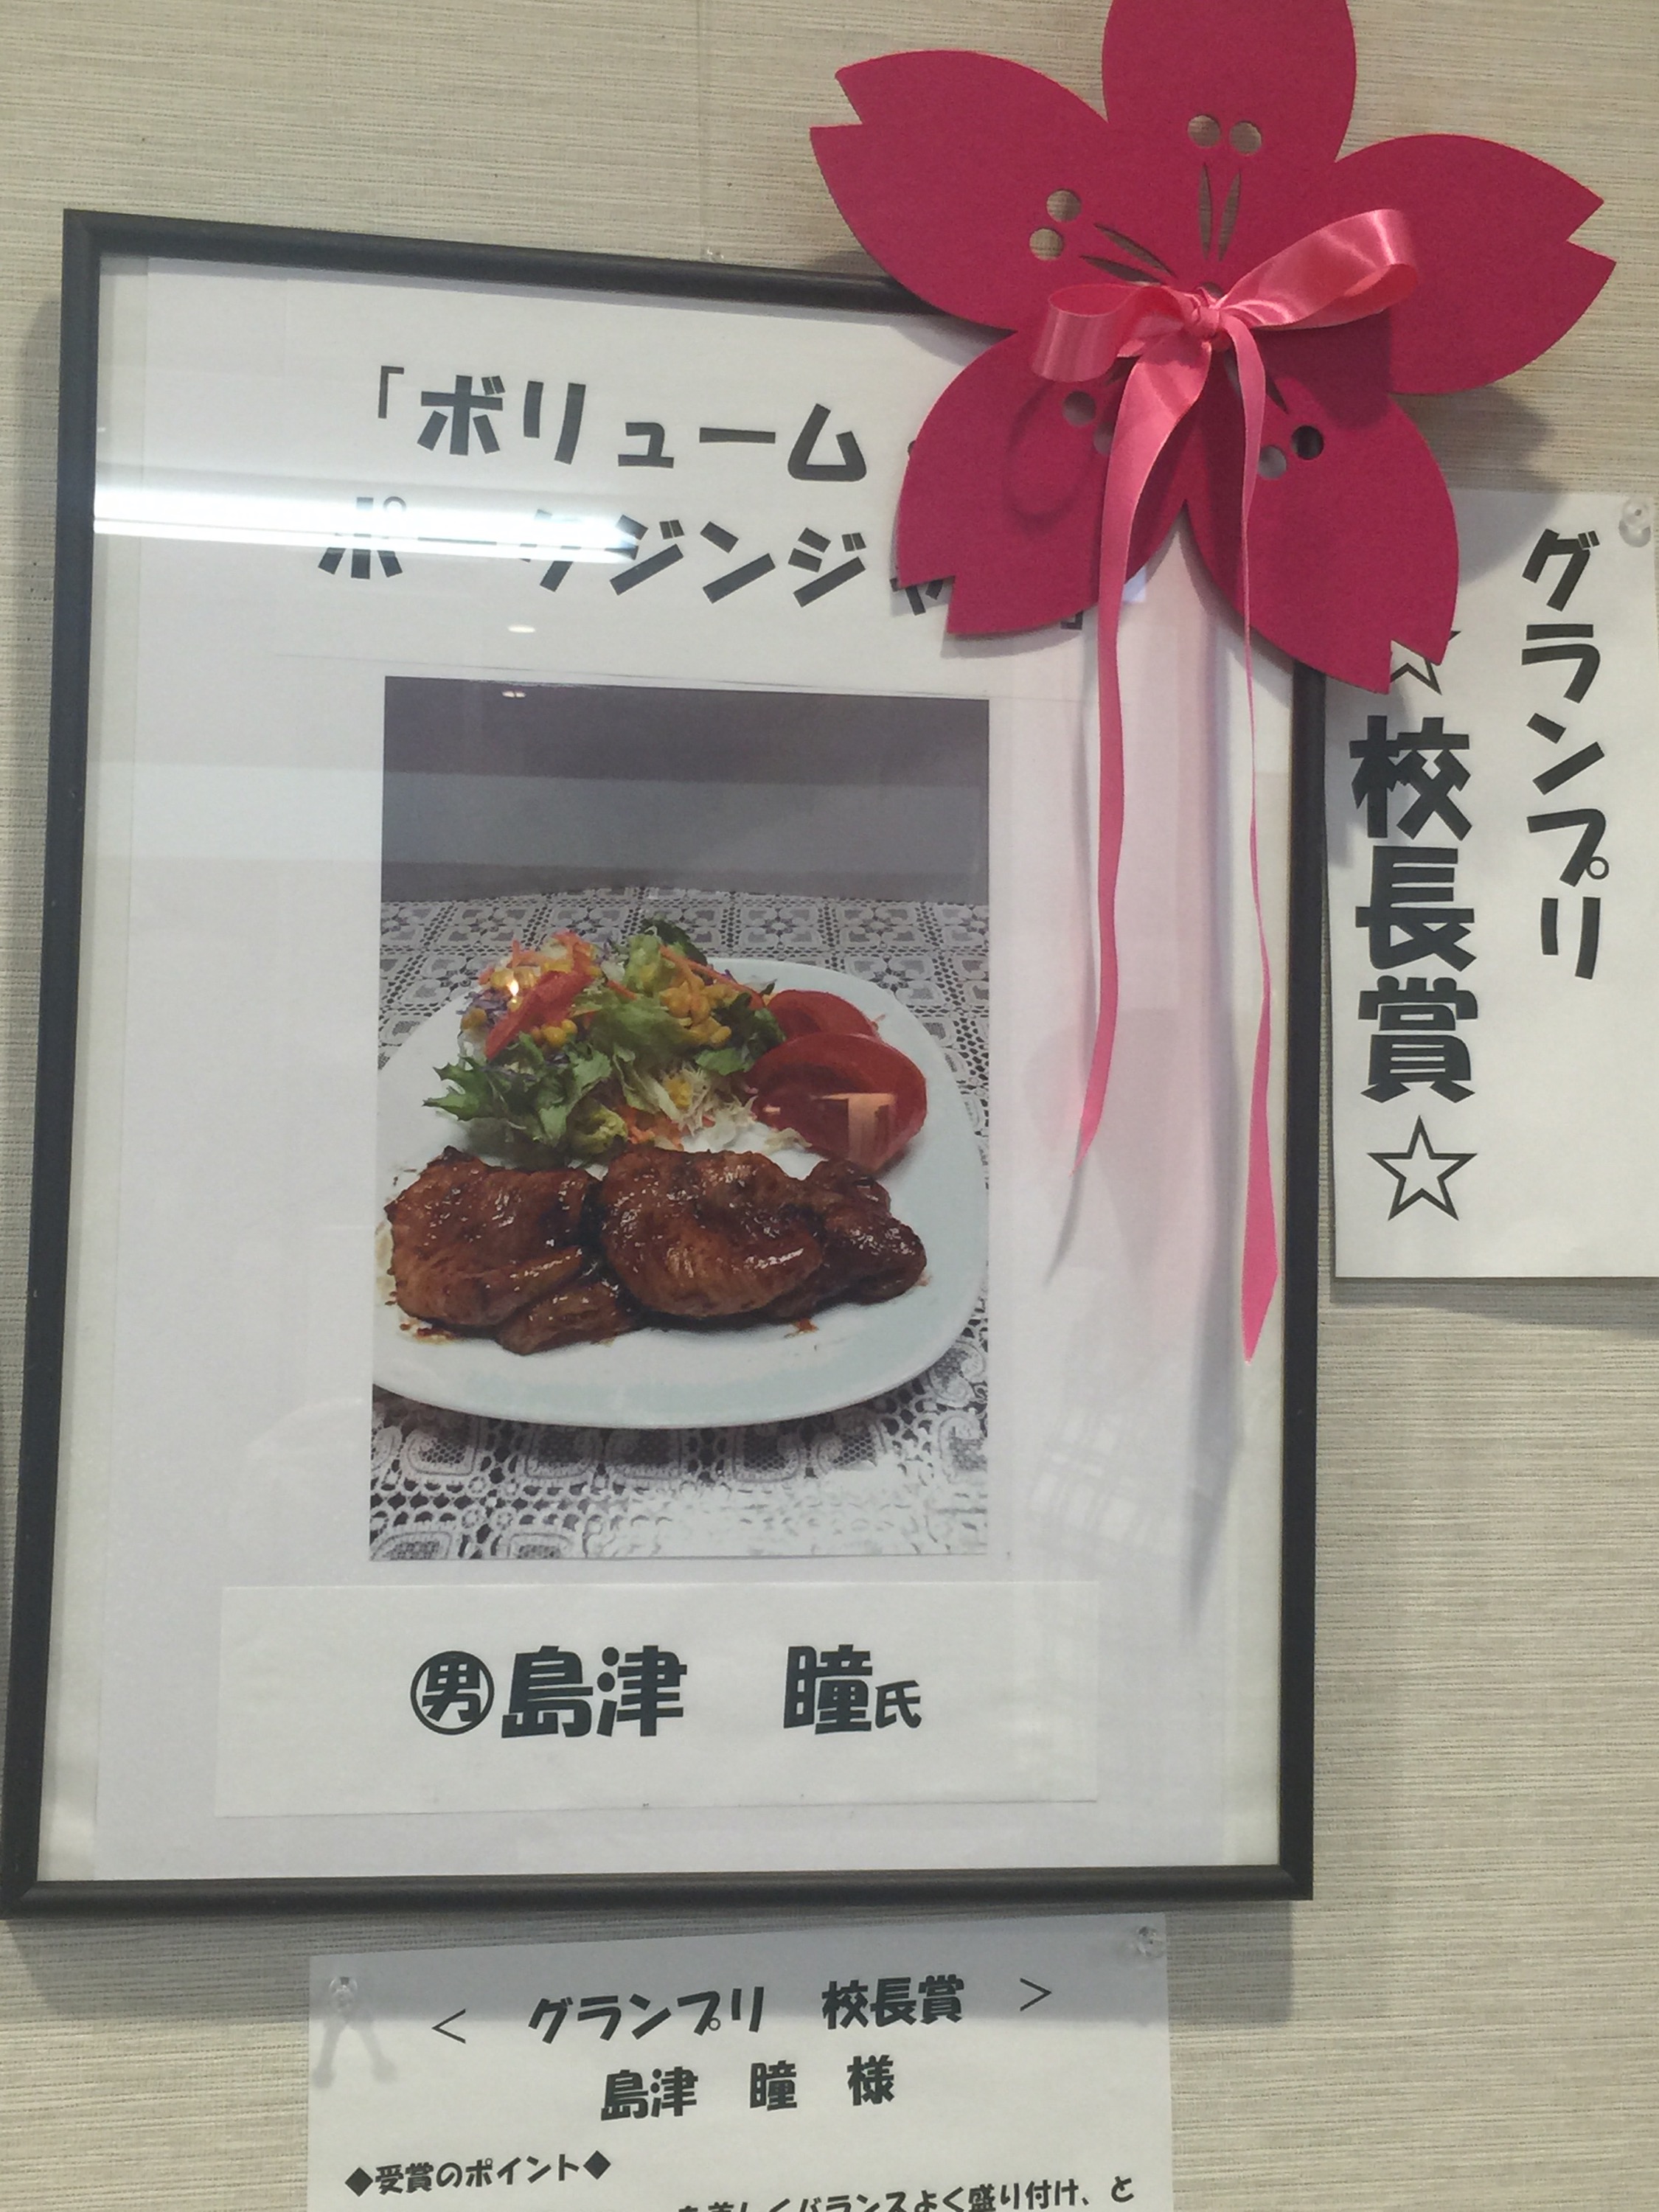 「ボリューム
ポークジンジャ
」
グランプリ
☆校長賞☆
㊚島津 瞳氏
＜ グランプリ 校長賞 ＞
島津 瞳 様
◆受賞のポイント◆
バランスよく盛り付け、と